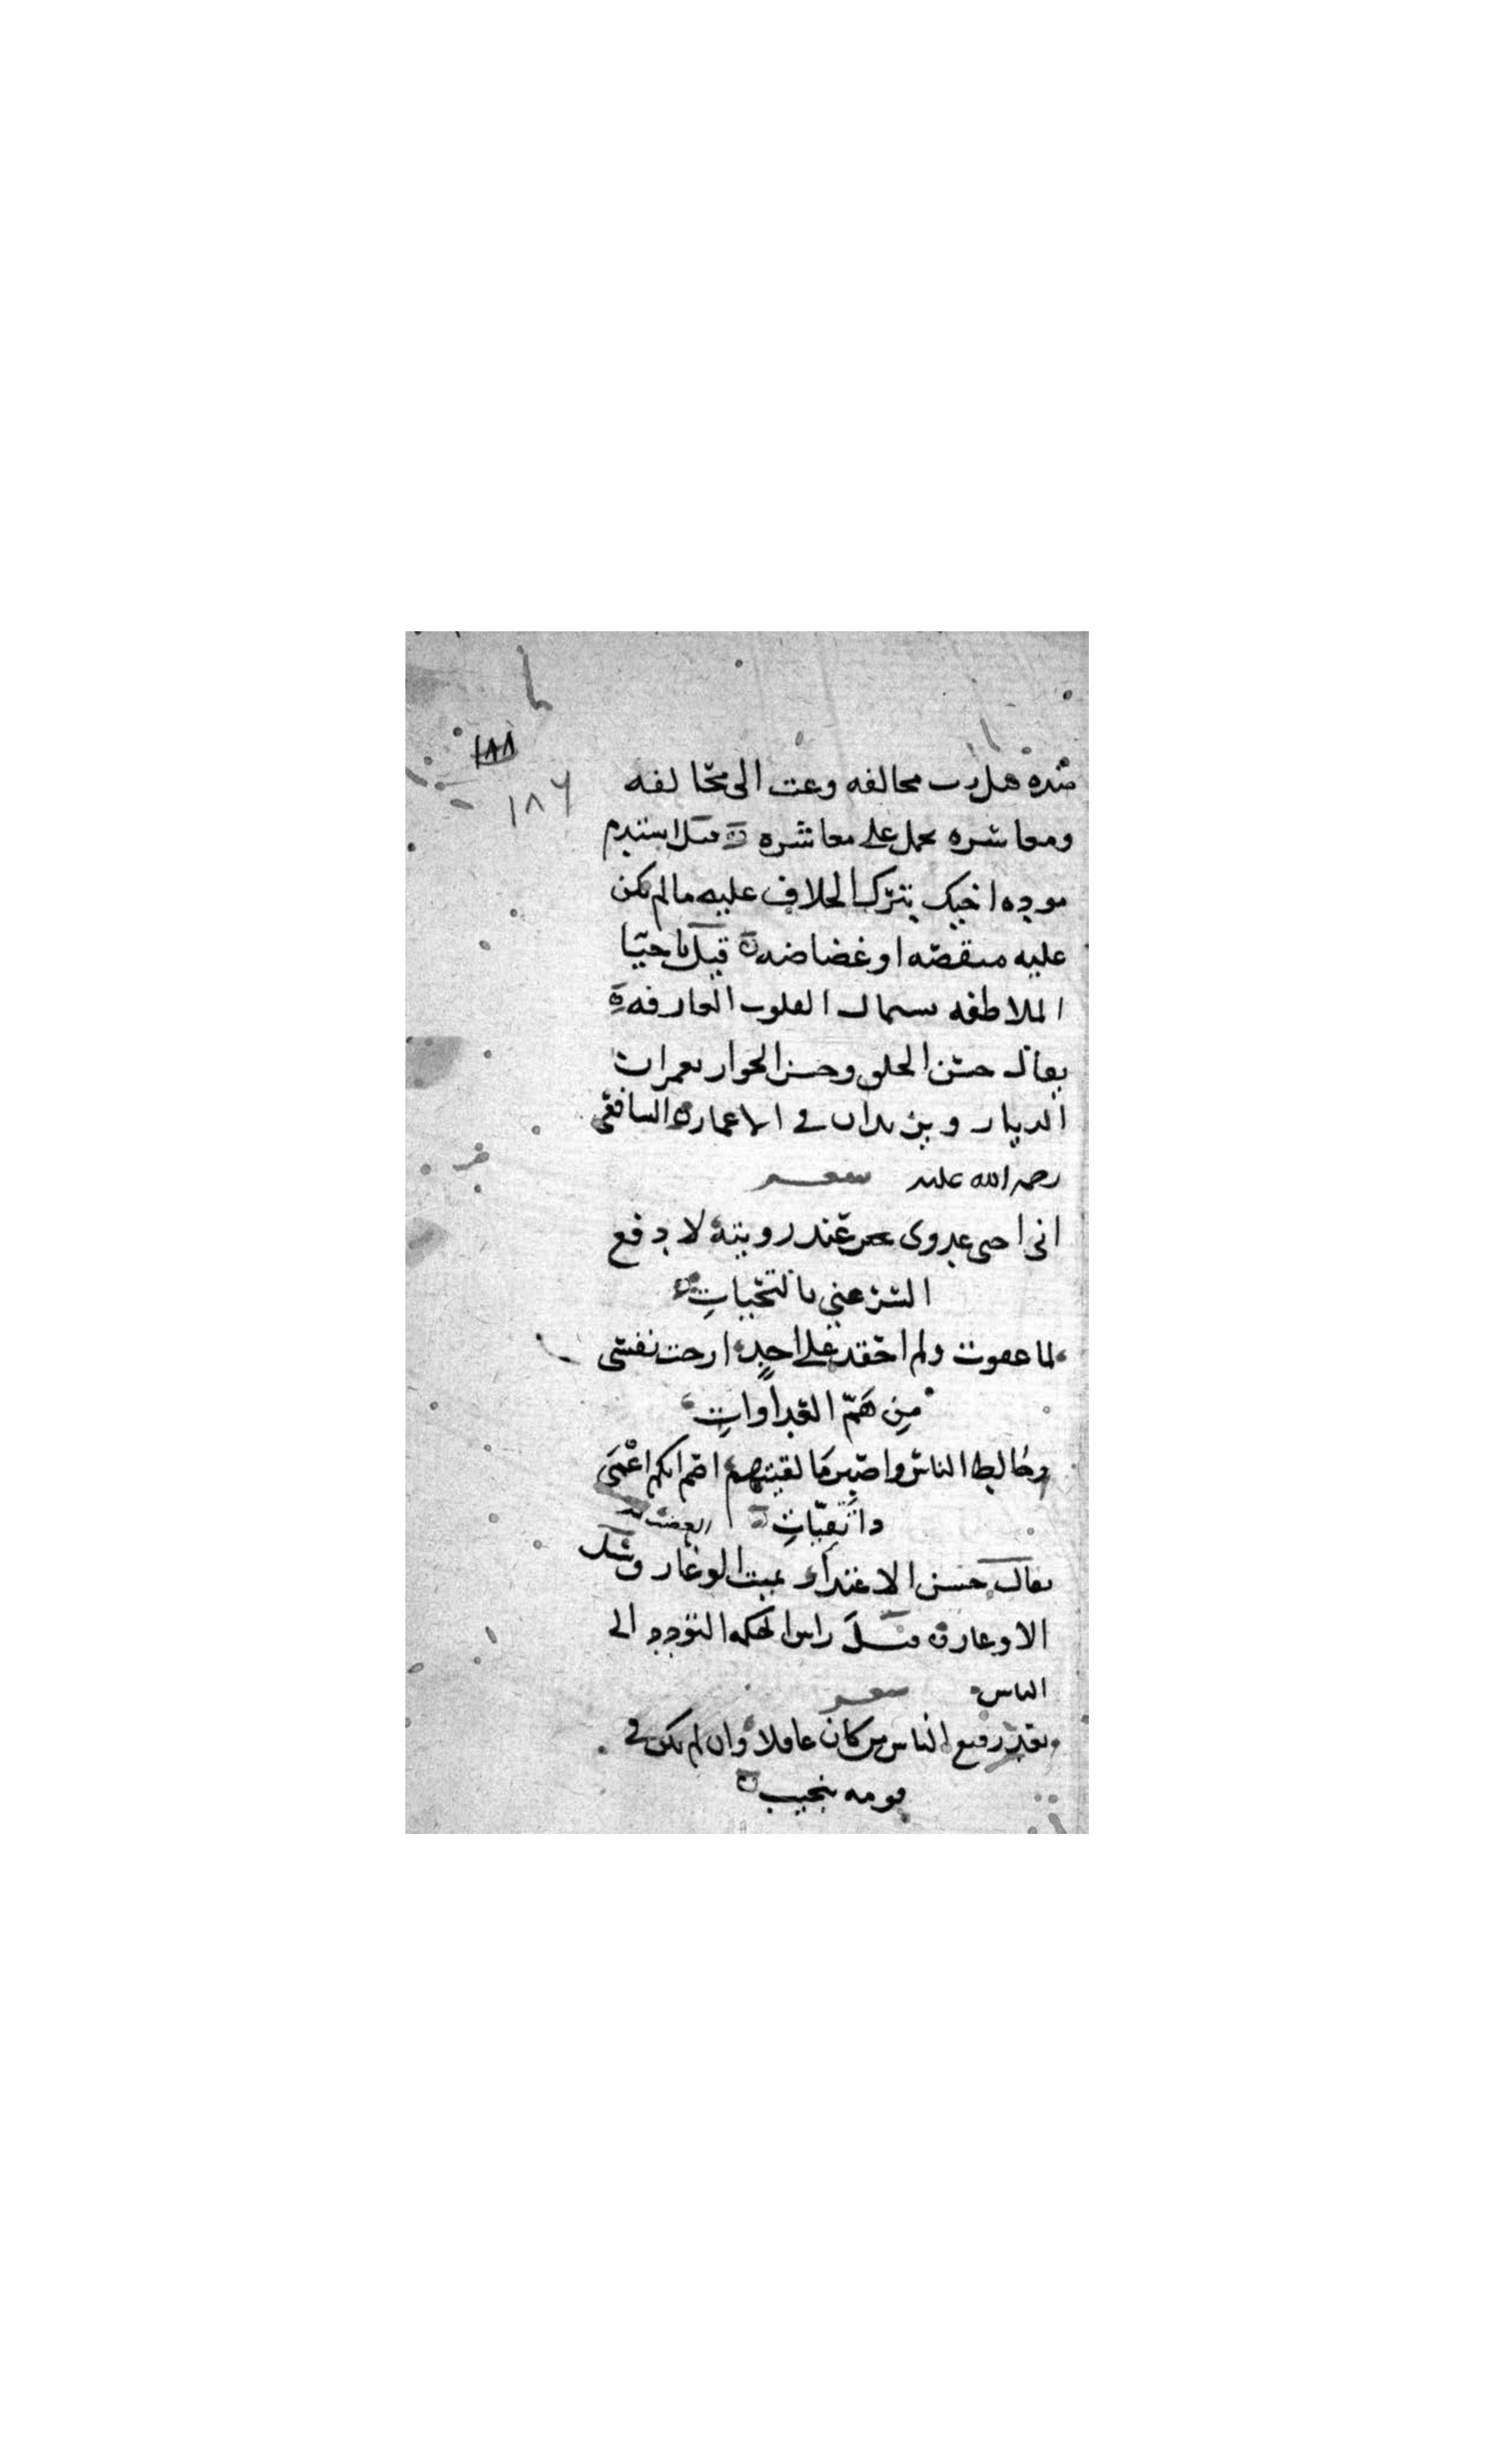 ١٨٨
١٨٦
ضده هل رب محالفه دعت الى مخالفه
ومعاشره تحمل على معاشره قيل استدم
موده اخيك بترك الخلاف عليه مالم تكن
عليه منقصه او غضاضه قيل
الملاطفه تستمال القلوب العارفه
يقال حسن الخلق وحسن الجوار يعمران
الديار ويزيدان في الاعمار الشافعى
رحمه الله عليه شعر
انى احيى عدوى عند رويته لا دفع
الشر عني بالتحيات
لما عفوت ولم احقد على احد ارحت نفسى
من هم العداوات
وخالط الناس واصبر ما لقيتهم اصم ابكم اعمى
ذا تقيات
يقال حسن الاعتذار يميت الاوغار
الاوعار قيل راس الحكمه التودد الى
الناس شعر
يعد رفيع الناس من كان عاقلا وان لم يكن في
قومه بنجيب